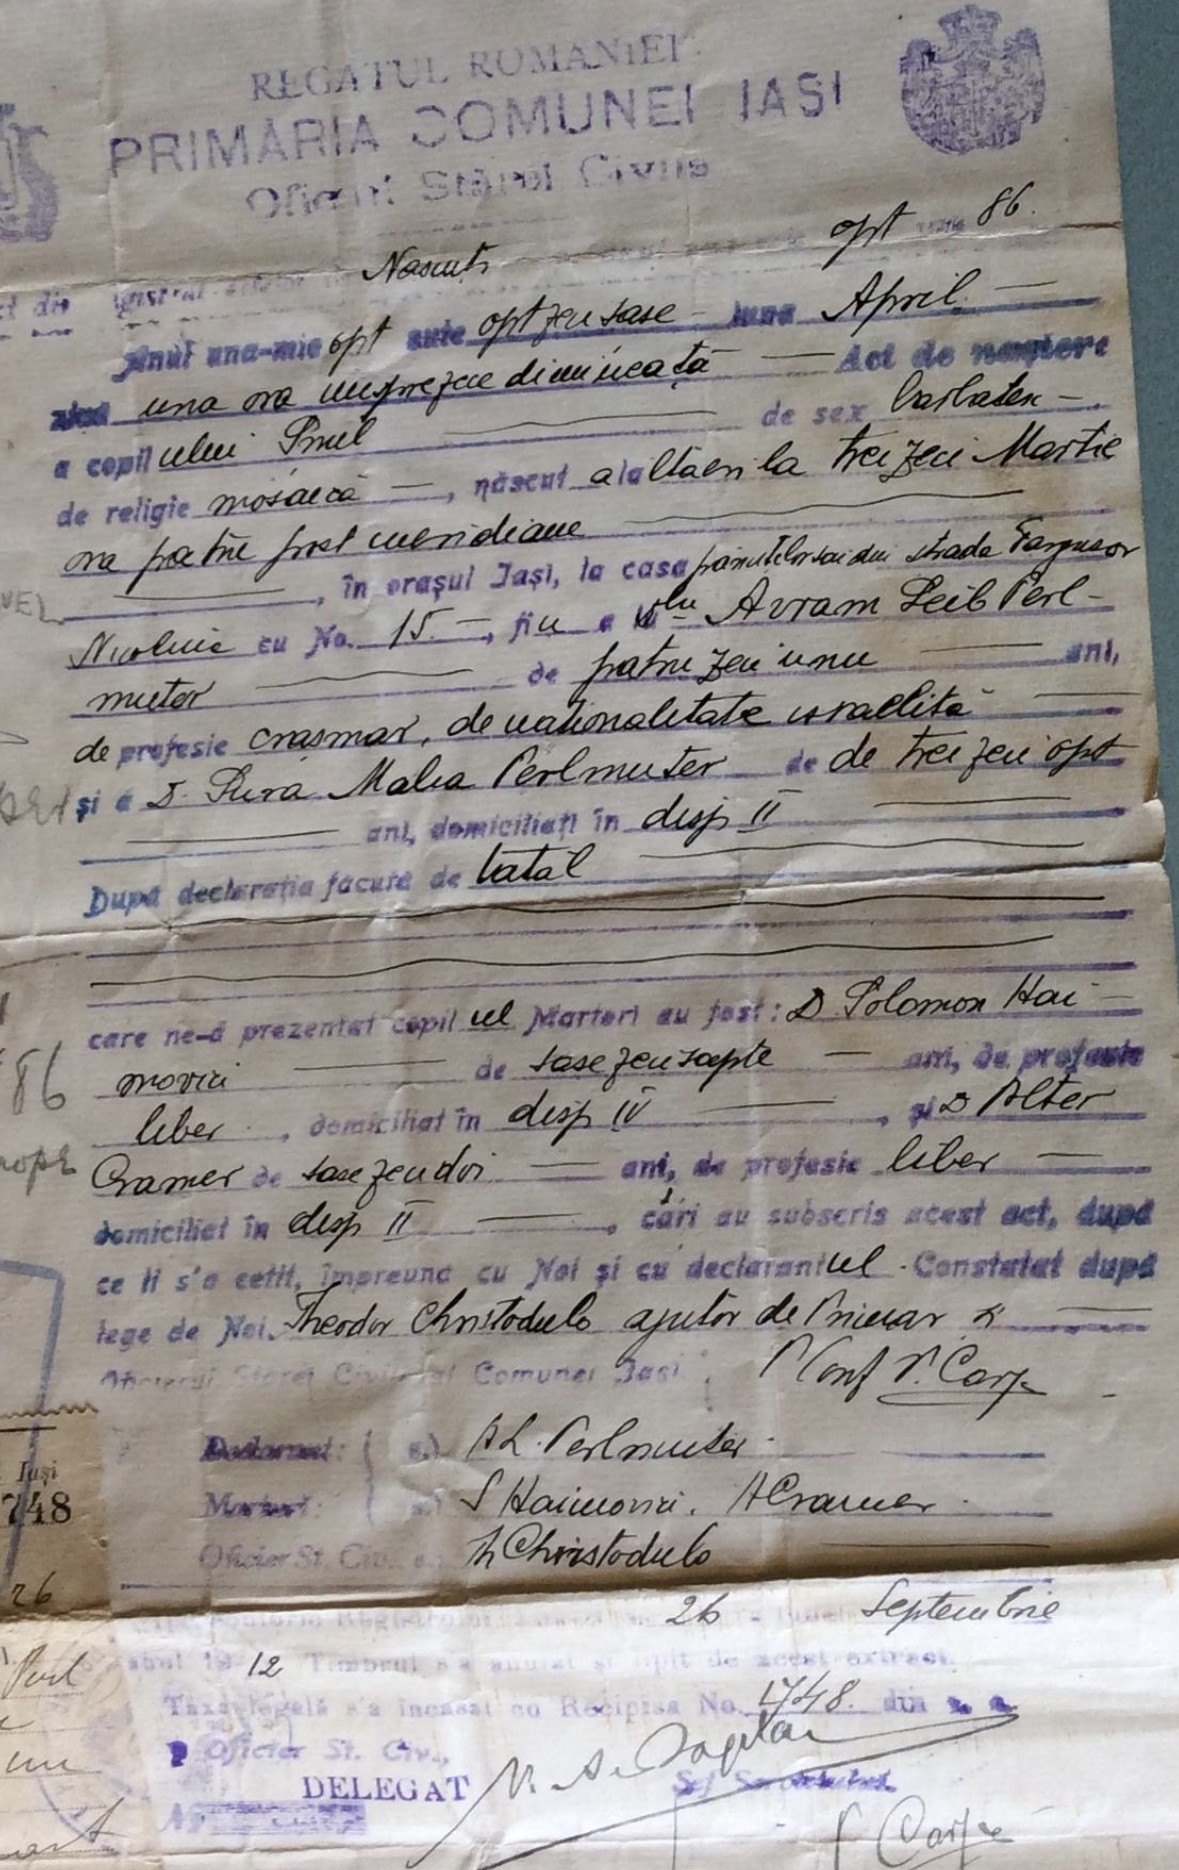 REGATUL ROMANIEI
PRIMARIA COMUNEI IASI
Oficiul Stărei Civile
din Registrul actelor Născuți opt 86.
Anul una-mie opt sute optzeci șase – luna April. –
ziua una ora unsprezece dimineață — Act de naștere
a copilului Smil — de sex bărbătesc –.
de religie mosaică –, născut alaltaeri la treizeci Martie
ora patru post meridiane
VEL
, în orașul Iași, la casa părinților sai din strada
Niculine cu No. 15. –, fiu a Avram Leib Perl-
muter — de patruzeci unu — ani,
de profesie crâșmar, de naționalitate israelită —
și a D. Sura Malca Perlmuter de de treizeci opt
— ani, domiciliați în desp II —
După declarația făcută de tatăl
care ne-a prezentat copilul Martori au fost: D Solomon Hai-
movici — de șasezeci șapte — ani, de profesie
86
liber, domiciliat în desp IV —, și D Alter
Cramer de șasezeci doi — ani, de profesie liber —
domiciliat în desp II —, cari au subscris acest act, după
ce li s'a cetit, împreună cu Noi și cu declarantul. Constatat după
lege de Noi. Theodor Christodulo ajutor de Primar și
Oficerul Starei Civile al Comunei Iași; Conf P. Carp
Declarant: ( s.) A L. Perlmuter.
Martori: ( s.) S Haimovici. A Cramer.
Iași
748
Oficier St. Civ. s.) Th Christodulo
26
26 Septembrie
anul 1912 Timbrul s'a anulat și lipit de acest extract.
Taxa legală s'a încasat cu Recipisa No. 1748. din a. a.
P Oficier St. Civ.,
DELEGAT
P Carp